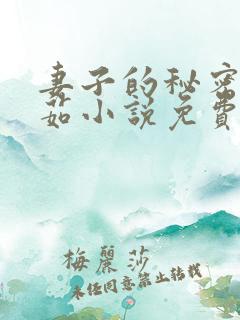 妻子的秘密
茹小说免費
梅麗莎
未经同意禁止转载